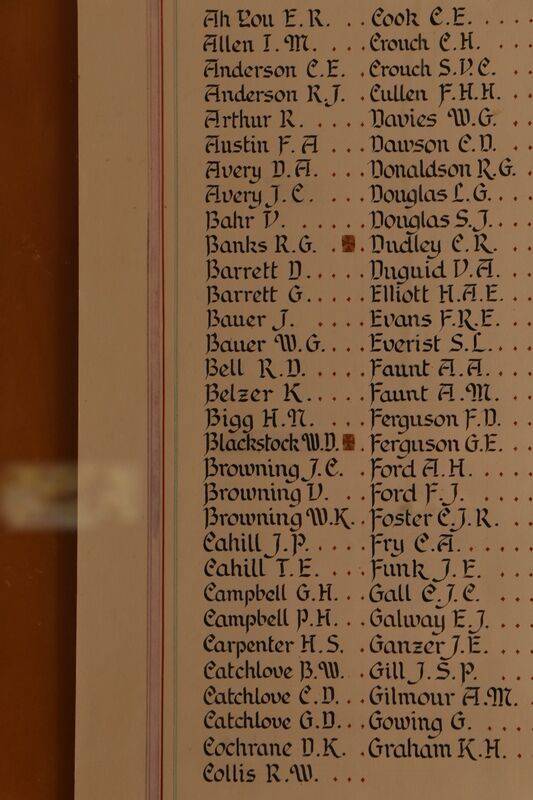 Ah You E.R. . . Cook C.E. . . . .
Allen I.M. . . . Crouch C.H. . . .
Anderson C.E. . Crouch S.V.C. . .
Anderson R.J. . Cullen F.H.H. . .
Arthur R. . . . . Davies W.G. . .
Austin F.A . . . Dawson C.D. . .
Avery D.A. . . . Donaldson R.G. .
Avery J.C. . . . Douglas L.G. . . .
Bahr V. . . . . . Douglas S.J. . . .
Banks R.G. . . Dudley C.R. . . .
Barrett D. . . . . Duguid V.A. . .
Barrett G. . . . . Elliott H.A.E. . .
Bauer J. . . . . Evans F.R.E. . .
Bauer W.G. . . . Everist S.L. . . .
Bell R.D. . . . . Faunt A.A. . . .
Belzer K. . . . . Faunt A.M. . . .
Bigg H.N. . . . Ferguson F.D. . .
Blackstock W.D. . Ferguson G.E. . .
Browning J.C. . Ford A.H. . . . .
Browning V. . . Ford F.J. . . . .
Browning W.K. . Foster C.J.R. . .
Cahill J.P. . . . . Fry C.A. . . . . .
Cahill T.E. . . . Funk J.E. . . .
Campbell G.H. . . Gall C.J.C. . . .
Campbell P.H. . . Galway E.J. . . .
Carpenter H.S. . Ganzer J.E. . . .
Catchlove B.W. . Gill J.S.P. . . .
Catchlove C.D. . . Gilmour A.M. .
Catchlove G.D. . . Gowing G. . . .
Cochrane D.K. . Graham K.H. . .
Collis R.W. . . .